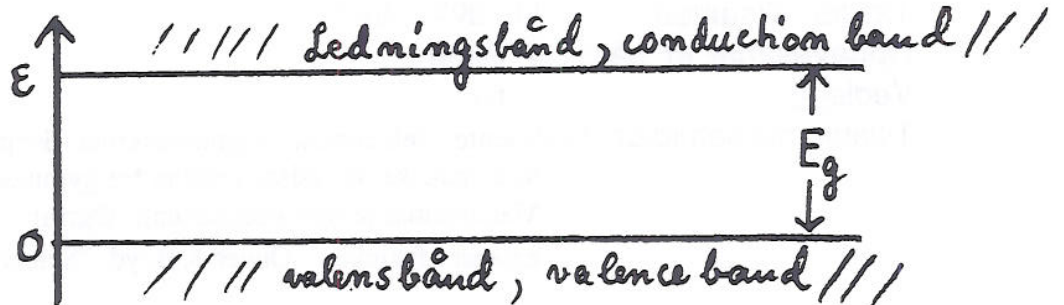 Ledningsbånd, conduction band
ε
E_g
0
valensbånd, valence band